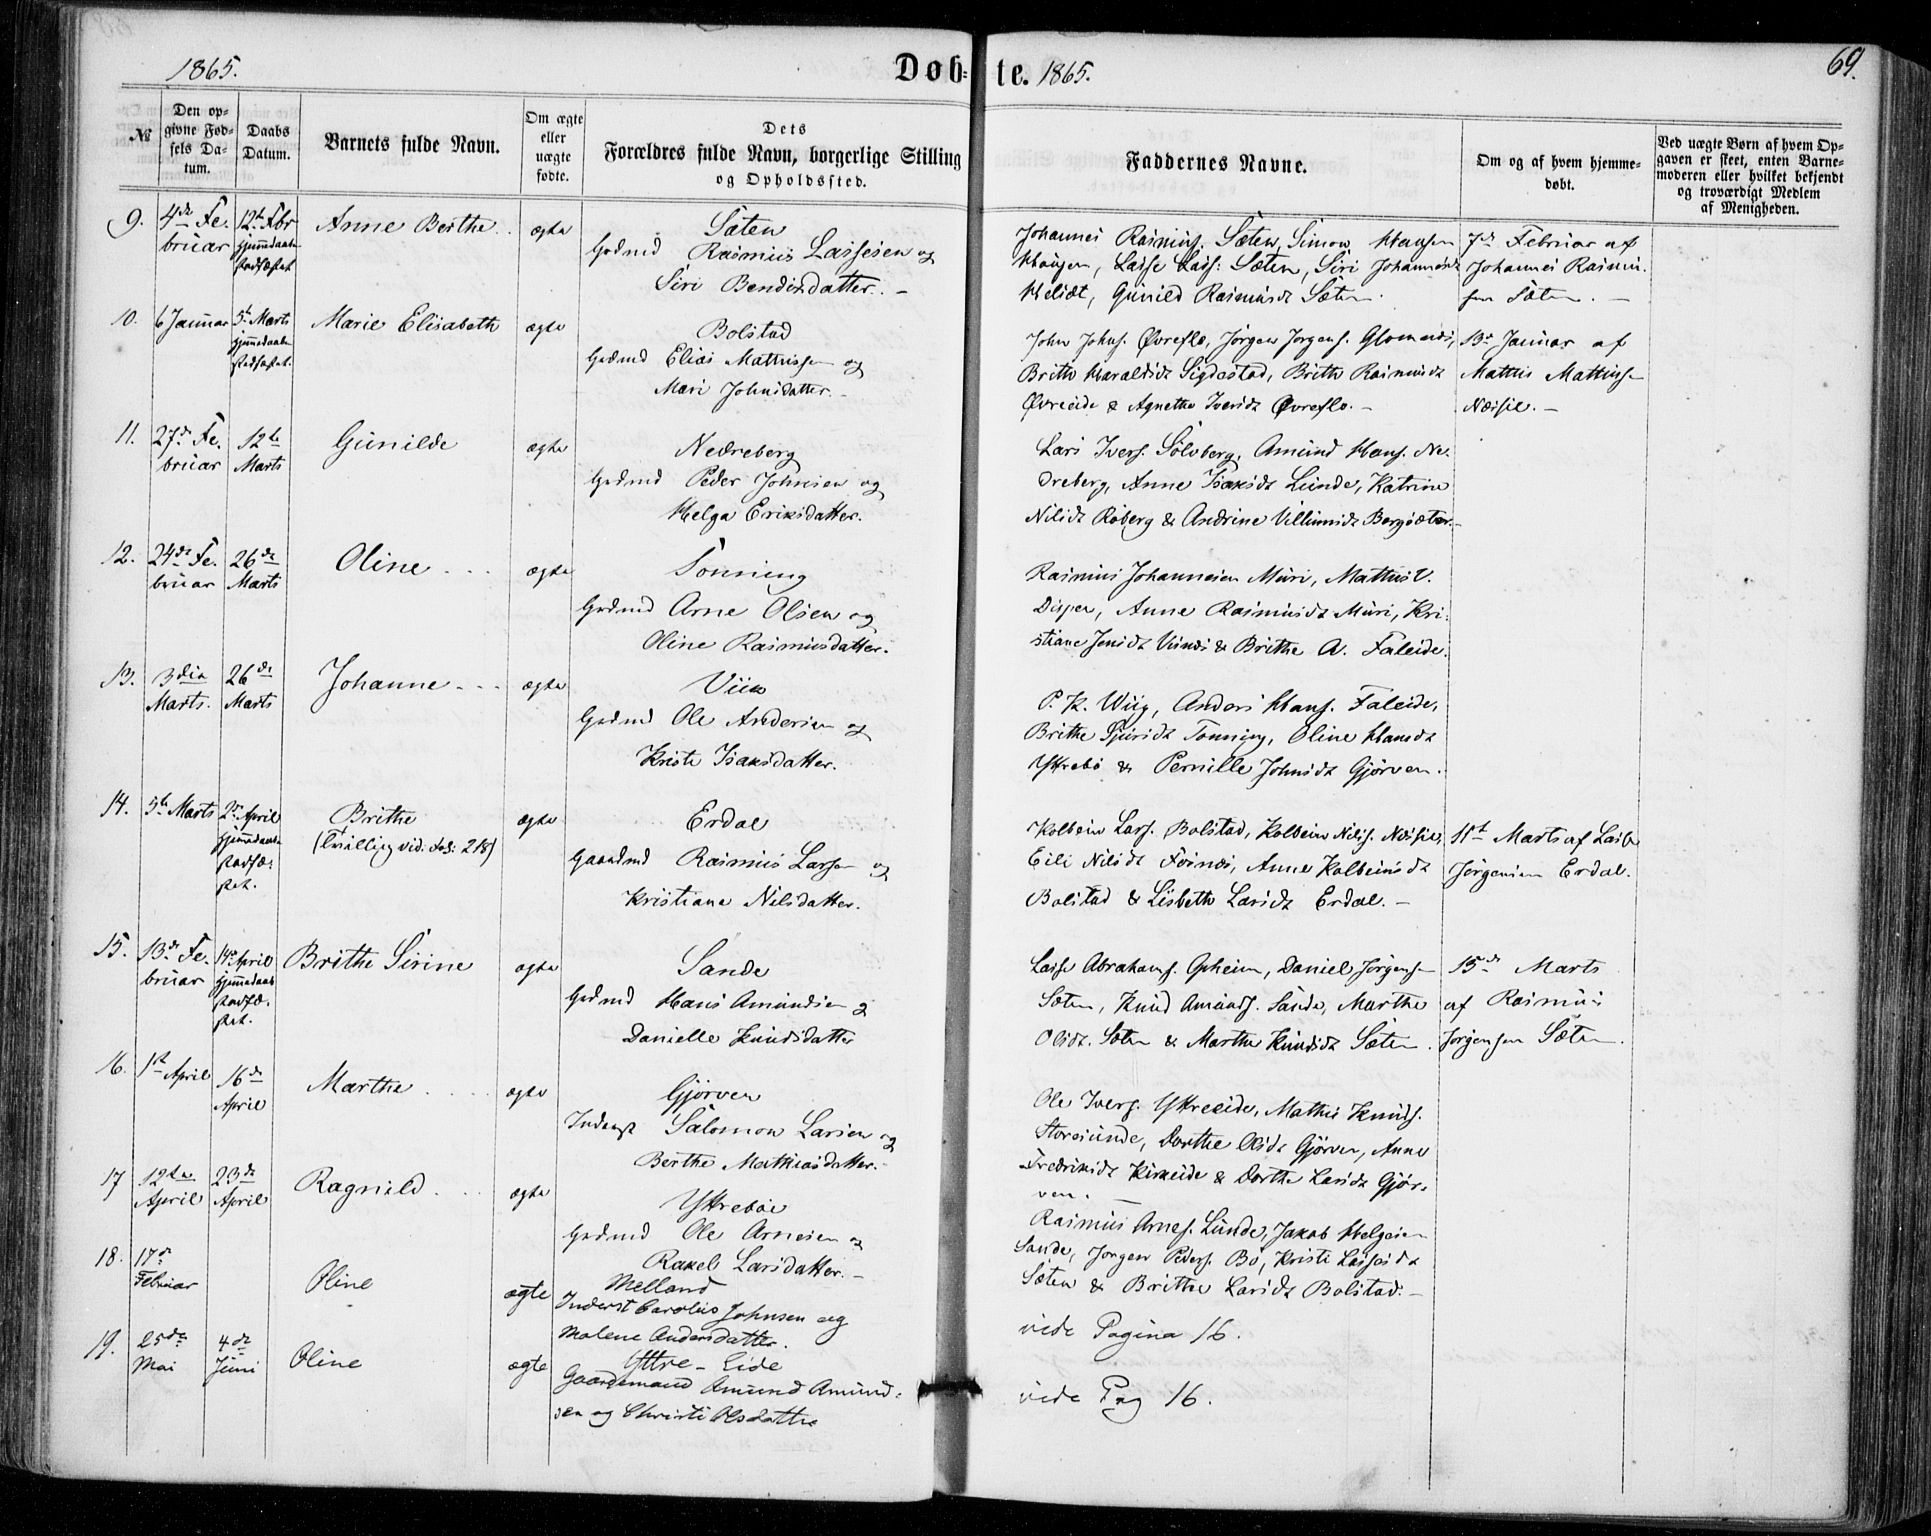 1865.
Døb-
te. 1865.
69.
№
Den op-
givne Fød-
sels Da-
tum.
Daabs
Datum.
Barnets fulde Navn.
Om ægte
eller
uægte
fødte.
Dets
Forældres fulde Navn, borgerlige Stilling
og Opholdssted.
Faddernes Navne.
Om og af hvem hjemme-
døbt.
Ved uægte Børn af hvem Op-
gaven er skeet, enten Barne-
moderen eller hvilket bekjendt
og troværdigt Medlem
af Menigheden.
9.
4de Fe-
bruar
12te Fbr
hjemmedaab
stadfæstet
Anne Berthe.
ægte
Sæten
Gdmd Rasmus Lassesen og
Siri Bendixdatter. -
Johannes Rasmuss. Sæten, Simon Hansen
Haugen, Lasse Lass: Sæten, Siri Johannesdt
Gunild Rasmusdt Sæten.
7de Februar af
Johannes Rasmu-
sen Sæten. -
10.
6 Januar
5te Marts
hjemmedaab
stadfæstet.
Marie Elisabeth
ægte
Bolstad
Gdmd Elias Mathissen og
Mari Johnsdatter. -
John Johns. Øvreflo, Jörgen Jörgens. Glomnæs,
Brithe Haraldsdt Sigdestad, Brithe Rasmusdt
Øvreeide & Agnethe Iversdt Øvreflo. -
13de Januar af
Mathis Mathiss.
Næssie. -
11.
27de Fe-
bruar
12te
Marts
Gunilde
ægte
Nedreberg
Gdmd Peder Johnsen og
Helga Eriksdatter.
Lars Ivers. Sölvberg, Amund Hans. Ne-
dreberg, Anne Isaksdt Lunde, Katrine
Nilsdt Roberg & Andrine Villumsdt Bergsæter. -
12.
24de Fe-
bruar
26de
Marts
Oline
ægte
Tonning
Gdmd Arne Olsen og
Oline Rasmusdatter.
Rasmus Johannesen Muri, Mathis V.
Anne Rasmusdt Muri, Kri-
stiane Jensdt Vinsnes & Brithe A. Faleide.
13.
3die
Marts.
26de
Marts
Johanne
ægte
Viik
Gdmd Ole Andersen og
Kristi Isaksdatter.
P. K. Wiig, Anders Hans. Faleide,
Brithe Sjursdt Tonning, Oline Hansdt
Yttrebö & Pernille Johnsdt Gjörven.
14.
5te Marts
2de April
hjemmedaab
stadfæ-
stet.
Brithe
(Tvilling vid: fol: 218)
ægte
Erdal
Gaardmd Rasmus Larsen og
Kristiane Nilsdatter.
Kolbein Lars. Bolstad, Kolbein Nilss. Næssie,
Eili Nilsdt Fosnæs, Anne Kolbeinsdt
Bolstad & Lisbeth Larsdt Erdal. -
11te Marts af Lasse
Jörgensen Erdal.
15.
13de Fe-
bruar
14de April
hjemmedaab
stadfæ-
stet.
Brithe Sirine
ægte
Sande
Gdmd Hans Amundsen og
Danielle Knudsdatter
Lasse Abrahams. Opheim, Daniel Jörgensen
Sæten, Knud Amunds. Sande, Marthe
Olsdt. Sæten & Marthe Knudsdt Sæten.
15de Marts
af Rasmus
Jörgensen Sæten.
16.
1ste April
16de
April
Marthe
ægte
Gjörven
Inderst Salomon Larsen og
Berthe Mathiasdatter. -
Ole Ivers. Yttreeide, Mathis Knuds.
Storesunde, Dorthe Olsdt Gjörven, Anne
Fredriksdt Kirkeide & Dorthe Larsdt Gjör-
ven. -
17
12te
April
23de
April
Ragnild
ægte
Yttreböe
Gdmd Ole Arnesen og
Rakel Larsdatter. -
Rasmus Arnes. Lunde, Jakob Helgesen
Sande, Jörgen Peders. Bö, Kristi Lassesdt
Sæten & Brithe Larsdt Bolstad: -
18.
17de
Februar
Oline
ægte
Melland
Inderst Carolus Johnsen og
Malene Andersdatter.
vide Pagina 16.
19.
25de
Mai
4de
Juni
Oline
ægte
Yttre-Eide
Gaardmand Amund Amund-
sen og Christi Olsdatter
vide Pag 16.